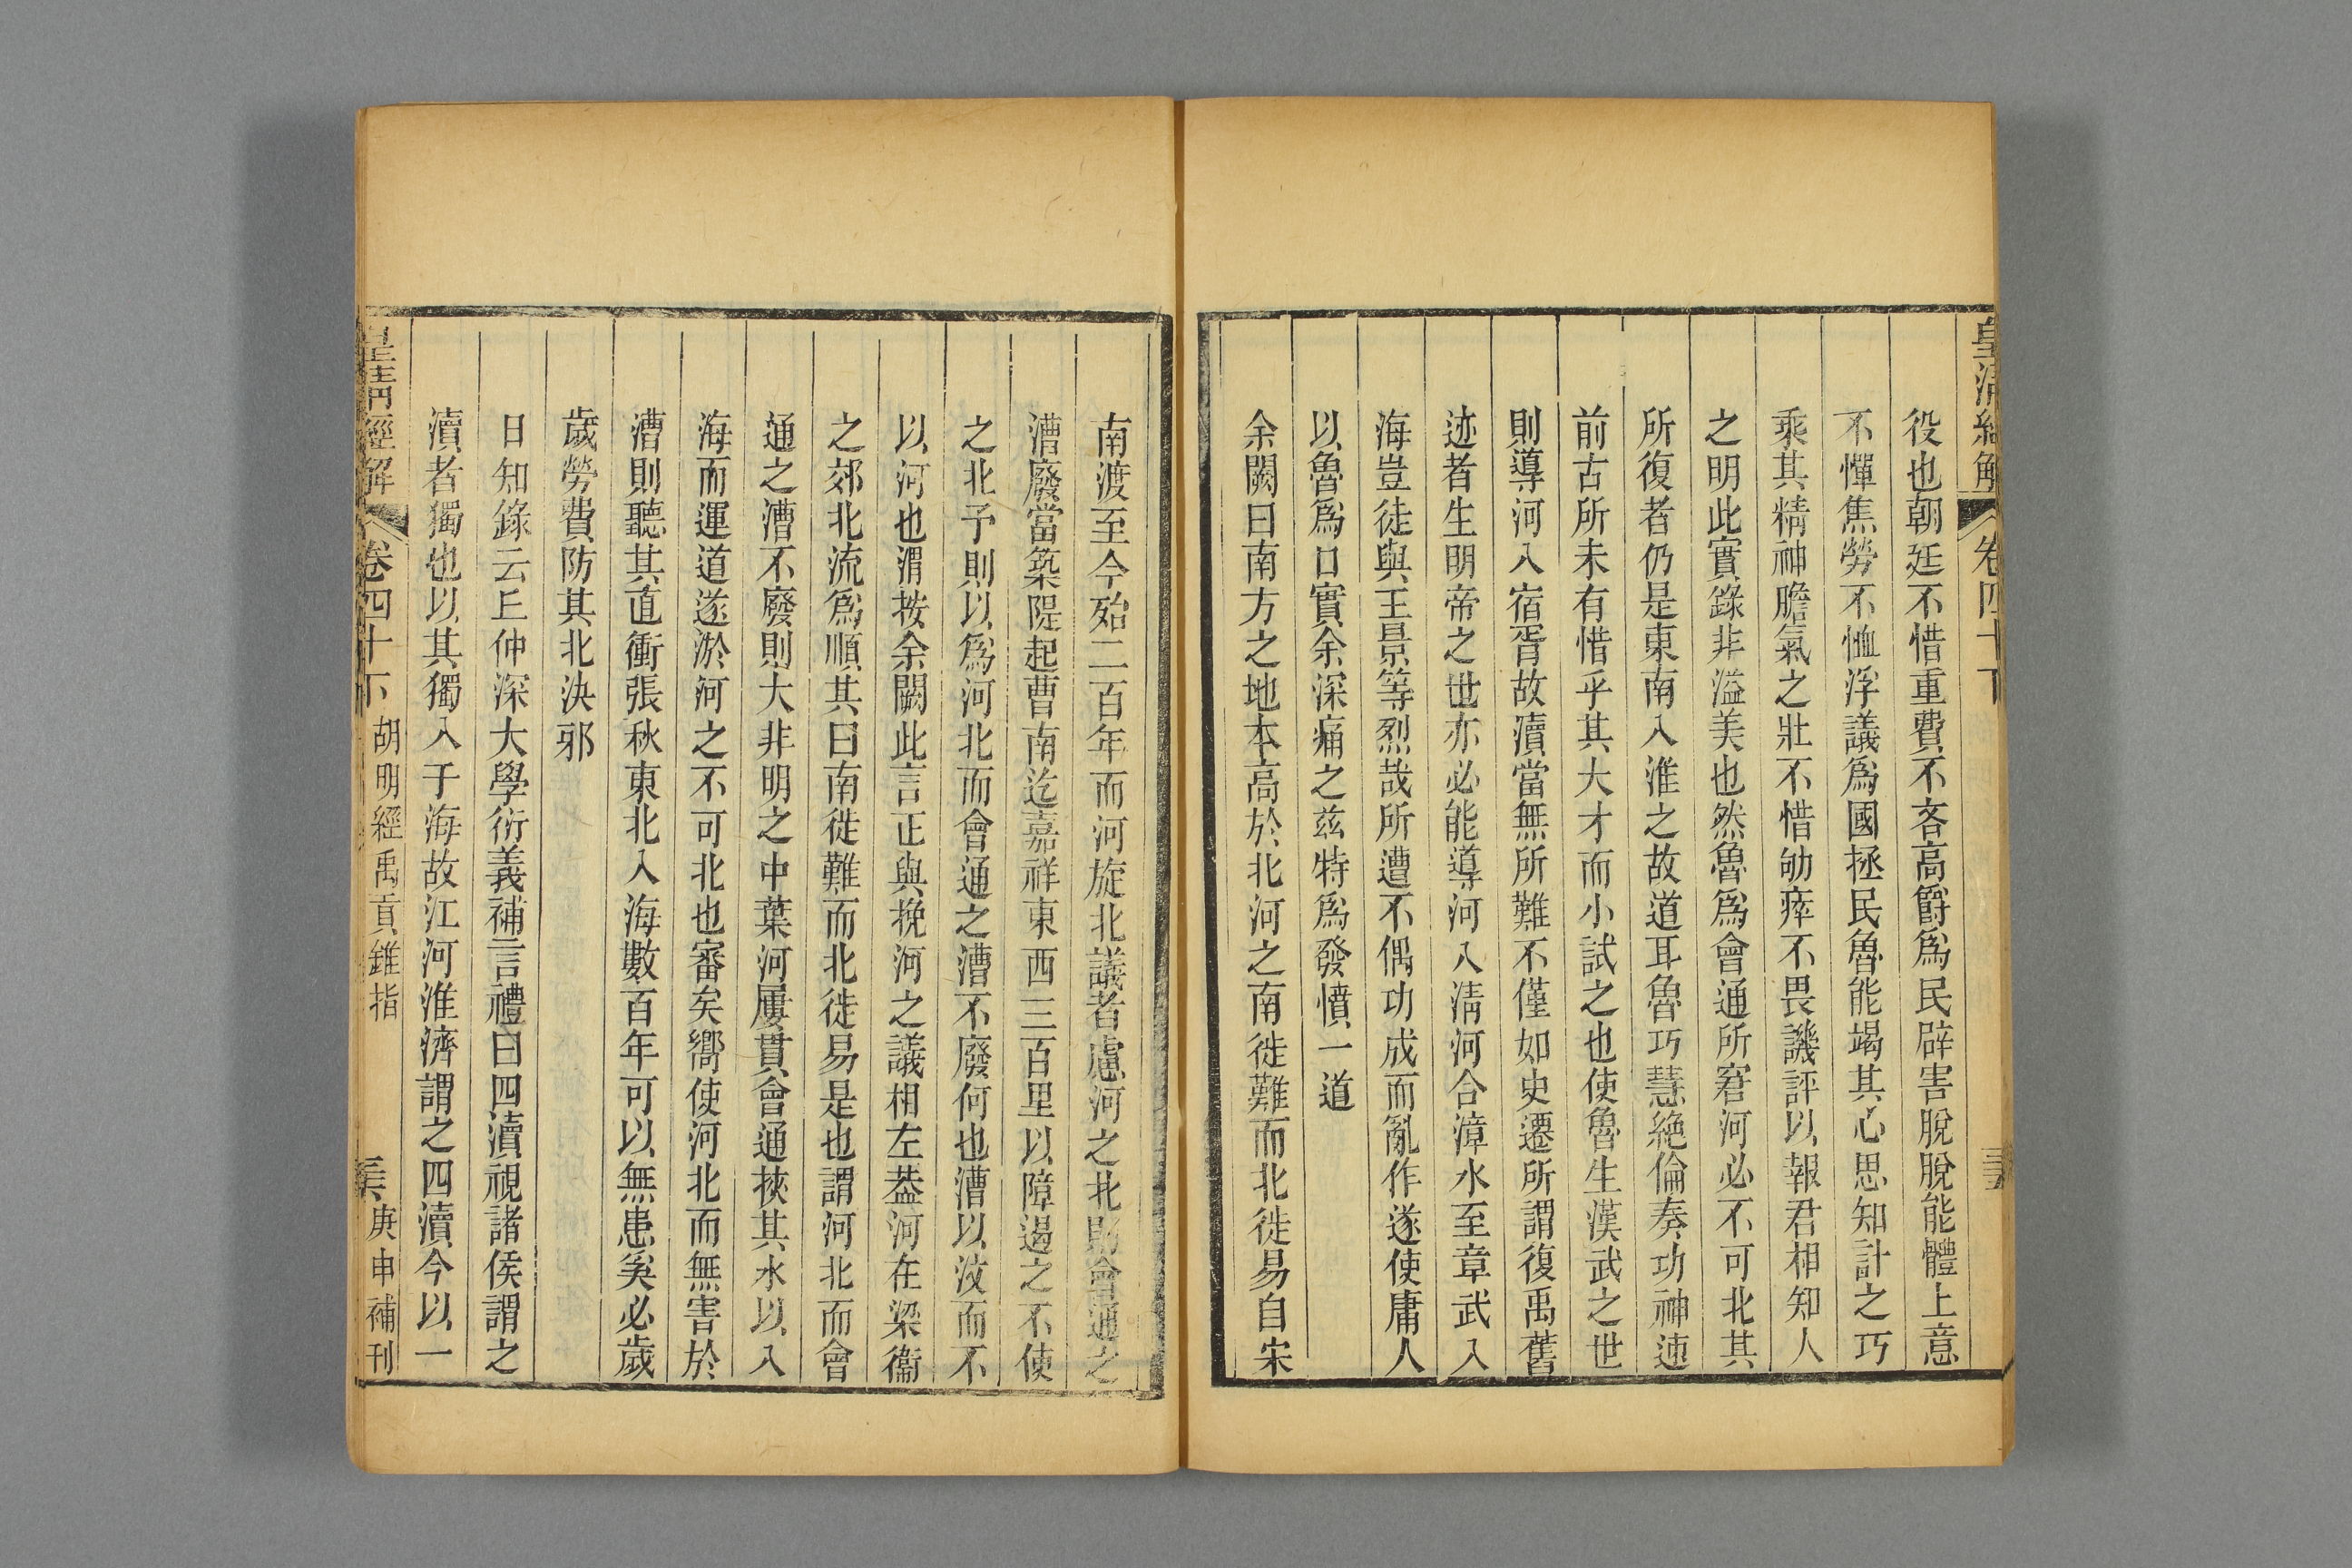 皇清經解 卷四十下
役也朝廷不惜重費不吝高爵爲民辟害脫脫能體上意
不憚焦勞不恤浮議爲國拯民魯能竭其心思知計之巧
乘其精神膽氣之壯不惜劬瘁不畏譏評以報君相知人
之明此實錄非溢美也然魯爲會通所窘河必不可北其
所復者仍是東南入淮之故道耳魯巧慧絶倫奏功神速
前古所未有惜乎其大才而小試之也使魯生漢武之世
則導河入宿胥故瀆當無所難不僅如史遷所謂復禹舊
迹者生明帝之世亦必能導河入淸河合漳水至章武入
海豈徒與王景等烈哉所遭不偶功成而亂作遂使庸人
以魯爲口實余深痛之茲特爲發憤一道
余闕曰南方之地本高於北河之南徙難而北徙易自宋
南渡至今殆二百年而河旋北議者慮河之北則會通之
漕廢當築隄起曹南迄嘉祥東西三百里以障遏之不使
之北予則以爲河北而會通之漕不廢何也漕以汶而不
以河也渭按余闕此言正與挽河之議相左葢河在梁衞
之郊北流爲順其曰南徙難而北徙易是也謂河北而會
通之漕不廢則大非明之中葉河屢貫會通挾其水以入
海而運道遂淤河之不可北也審矣嚮使河北而無害於
漕則聽其直衝張秋東北入海數百年可以無患奚必歲
歲勞費防其北決邪
日知錄云丘仲深大學衍義補言禮曰四瀆視諸侯謂之
瀆者獨也以其獨入于海故江河淮濟謂之四瀆今以一
皇淸經解 卷四十下 胡明經禹貢錐指 庚申補刊